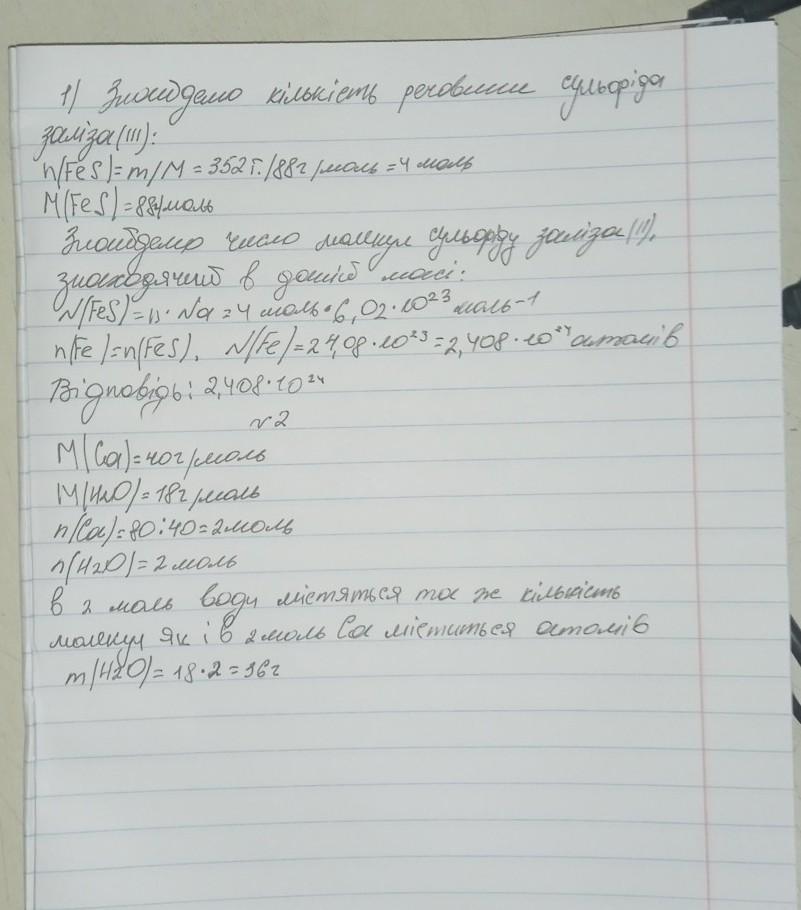 1) Знайдемо кількість речовини сульфіда
заліза(III):
n(FeS)=m/M=352г./88г/моль=4 моль
M(FeS)=88г/моль
Знайдемо число молекул сульфіду заліза(II),
знаходячий в даній масі:
N(FeS)=n·Na=4 моль·6,02·10²³ моль-1
n(Fe)=n(FeS). N(Fe)=24,08·10²³=2,408·10²⁴ атомів
Відповідь: 2,408·10²⁴
№2
M(Ca)=40г/моль
M(H2O)=18г/моль
n(Ca)=80:40=2моль
n(H2O)=2моль
в 2 моль води містяться та ж кількість
молекул як і в 2моль Ca міститься атомів
m(H2O)=18·2=36г